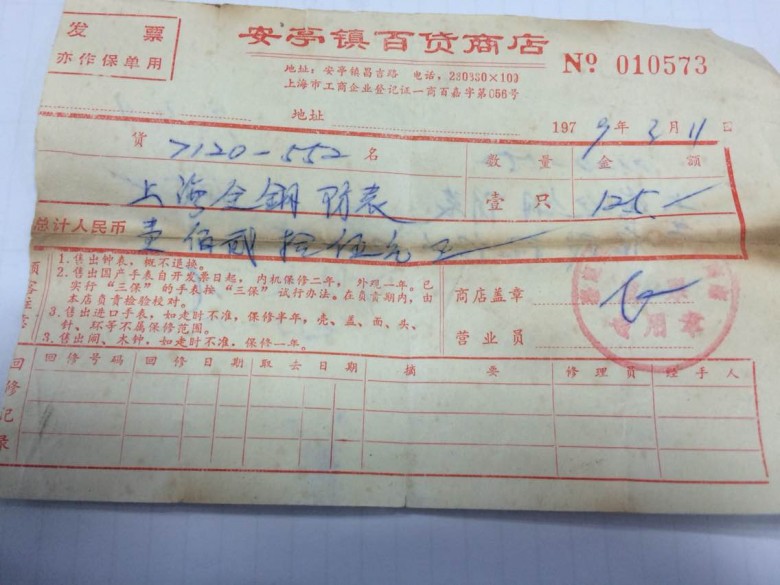 发票
亦作保单用
安亭镇百货商店
地址：安亭镇昌吉路 电话，280880×103
上海市工商企业登记证一商百嘉字第056号
Nº 010573
地址
1979年3月11日
货 7120-552 名 数量 金额
上海全钢防表 壹只 125.
总计人民币 壹佰贰拾伍元正
顾客注意
1.售出钟表，概不退换。
2.售出国产手表自开发票日起，内机保修二年，外观一年。已
实行“三保”的手表按“三保”试行办法。在负责期内，由
本店负责检验校对。
3.售出进口手表，如走时不准，保修半年，壳、盖、面、头、
针、环等不属保修范围。
3.售出闹、木钟，如走时不准，保修一年。
商店盖章
营业员
专用章
回修记录
回修号码 回修日期 取去日期 摘要 修理员 经手人